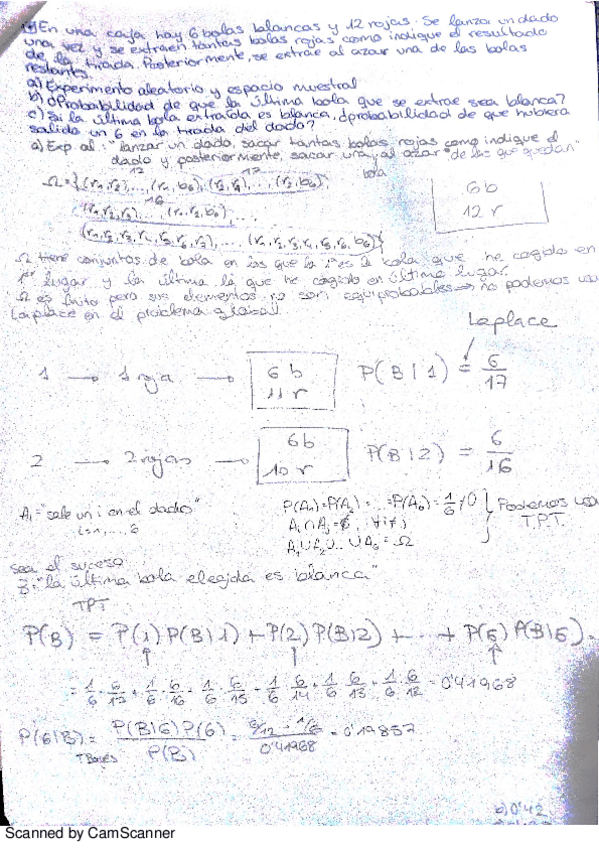 En una caja hay 6 bolas blancas y 12 rojas. Se lanza un dado
una vez y se extraen tantas bolas rojas como indique el resultado
de la tirada. Posteriormente, se extrae al azar una de las bolas
restantes.
a) Experimento aleatorio y espacio muestral
b) ¿Probabilidad de que la última bola que se extrae sea blanca?
c) Si la última bola extraída es blanca, ¿probabilidad de que hubiera
salido un 6 en la tirada del dado?
a) Exp. al: "lanzar un dado, sacar tantas bolas rojas como indique el
dado y posteriormente, sacar una al azar "de las que quedan"
bola
6b
12 r
Ω tiene conjuntos de bola en los que la 1ª es la bola que he cogido en
1er lugar y la última la que he cogido en último lugar.
Ω es finito pero sus elementos no son equiprobables → no podemos usa
Laplace en el problema global
Laplace
1 → 1 roja → 6 b 11 r P(B|1) = 6/17
2 → 2 rojas → 6b 10 r P(B|2) = 6/16
Ai = "sale un i en el dado"
i=1,...,6
P(A1)=P(A2)=...=P(A6)=1/6≠0
Ai∩Aj=∅, ∀i≠j
A1∪A2∪...∪A6=Ω
Podemos usa
T.P.T.
sea el suceso
B="la última bola elegida es blanca"
TPT
P(B) = P(1)P(B|1)+P(2)P(B|2)+...+P(6)P(B|6)
= 1/6·6/17+1/6·6/16+1/6·6/15+1/6·6/14+1/6·6/13+1/6·6/12=0'41968
P(6|B)= P(B|6)P(6)/P(B) = 6/12·1/6/0'41968 = 0'19857
TBayes
b) 0'42
Scanned by CamScanner